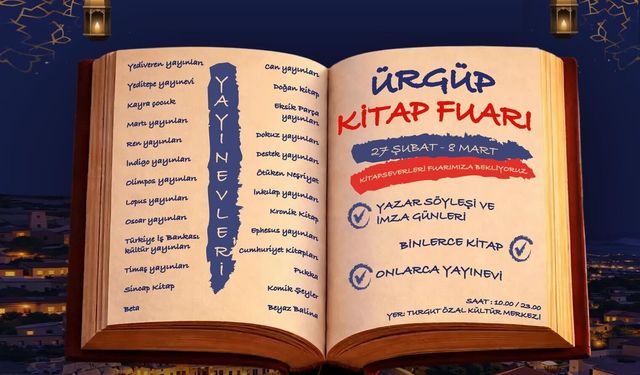 Yediveren yayınları
Yeditepe yayınevi
Kayra çocuk
Martı yayınları
Ren yayınları
İndigo yayınları
Olimpos yayınları
Lopus yayınları
Oscar yayınları
Türkiye İş Bankası
kültür yayınları
Timaş yayınları
Sincap Kitap
Beta
YAYINEVLERİ
Can yayınları
Doğan kitap
Eksik Parça
yayınları
Dokuz yayınları
Destek yayınları
Ötüken Neşriyat
İnkılap yayınları
Kronik Kitap
Ephesus yayınları
Cumhuriyet Kitapları
Pukka
Komik Şeyler
Beyaz Balina
ÜRGÜP
KİTAP FUARI
27 ŞUBAT - 8 MART
KİTAPSEVERLERİ FUARIMIZA BEKLİYORUZ
YAZAR SÖYLEŞİ VE
İMZA GÜNLERİ
BİNLERCE KİTAP
ONLARCA YAYINEVİ
SAAT : 10.00 / 23.00
YER: TURGUT ÖZAL KÜLTÜR MERKEZİ